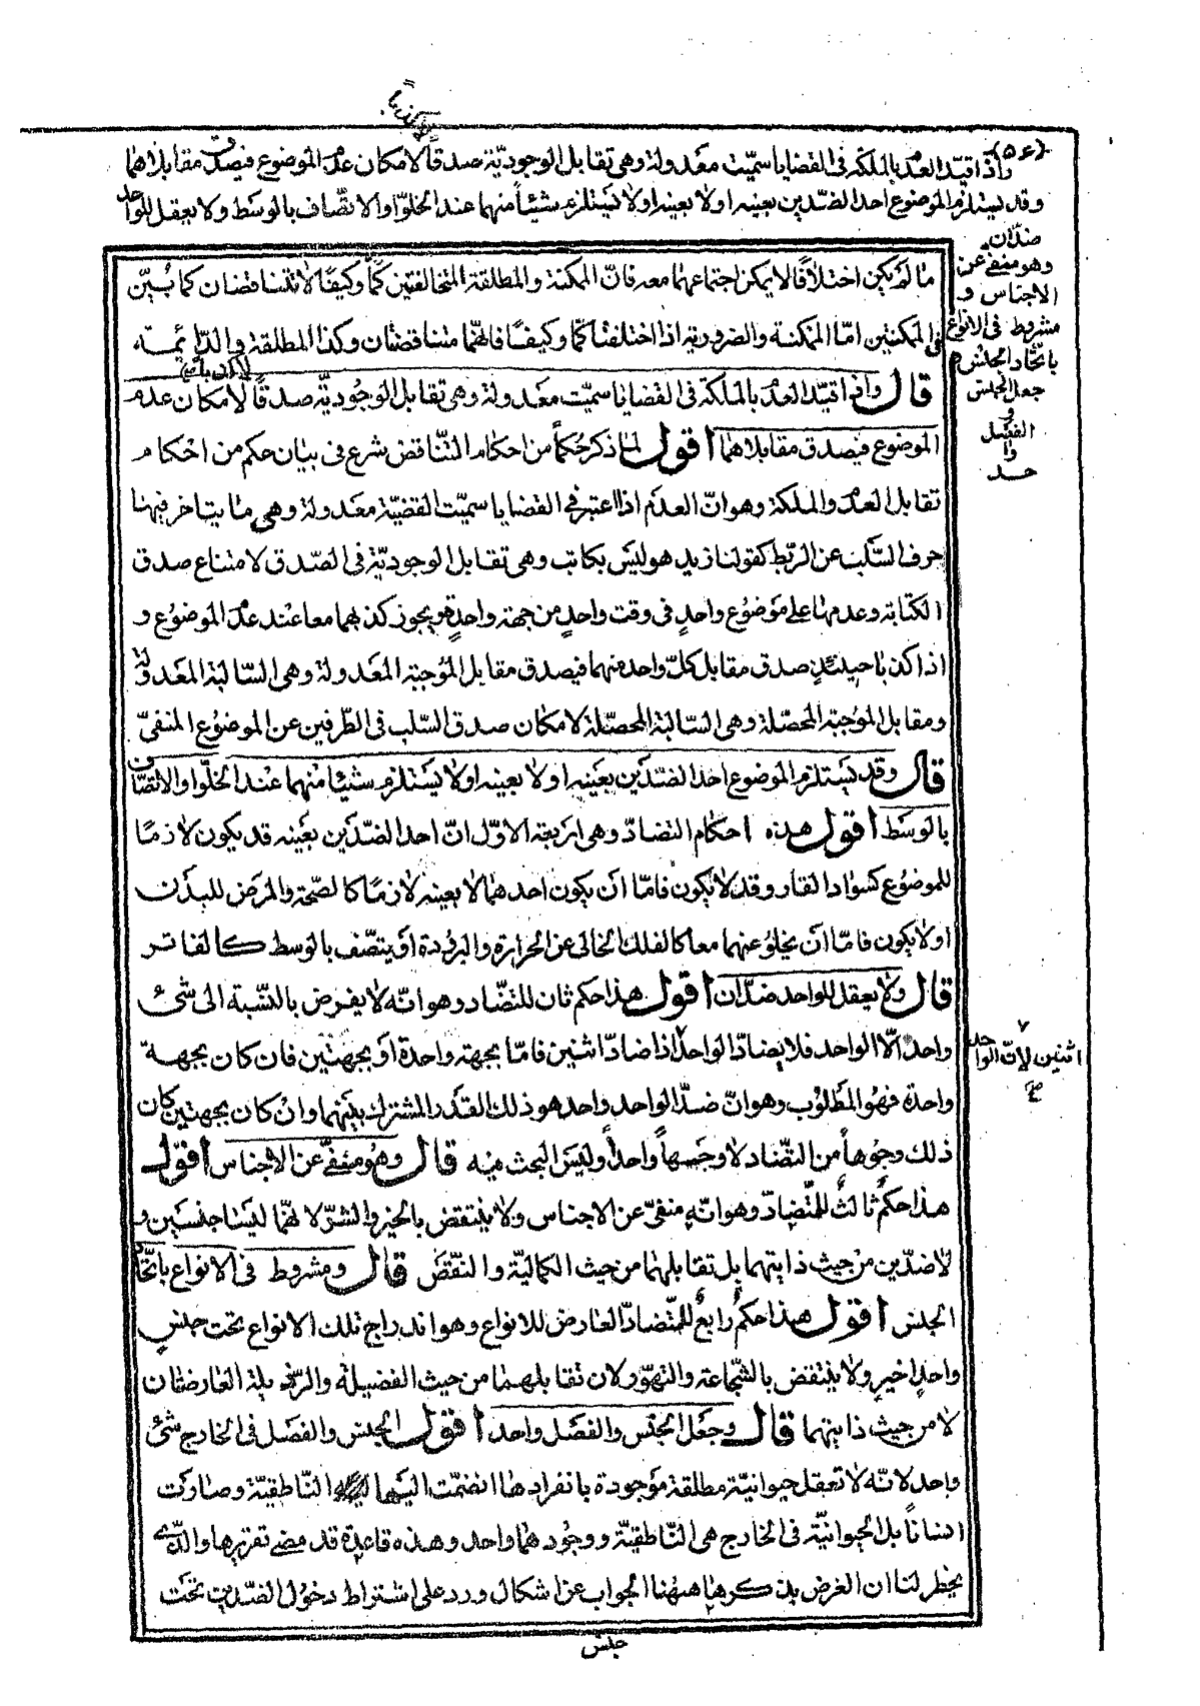 لا كذبا
(٥٤)
واذا قيّد العدم بالملكة فى القضايا سميّت معدولة وهى تقابل الوجوديّة صدقاً لامكان عدم الموضوع فيصدق مقابلاهما
وقد يستلزم الموضوع احد الضدّين بعينه اولا بعينه اولا يستلزم شيئاً منهما عند الخلوّ او الاتّصاف بالوسط ولا يعقل للواحد
ضدّان
وهو منفىّ عن
الاجناس و
مشروط فى الانواع
باتّحاد الجنس
جعل الجنس
و
الفصل
وا
حد
ما لم يكن اختلافا لا يمكن اجتماعهما معه فانّ الممكنة والمطلقة المتخالفتين كمّاً وكيفًا لا تتناقضان كما بُيّن
فى الممكنتين امّا الممكنة والضرورية اذا اختلفتا كمّا وكيفًا فانّهما متناقضتان وكذا المطلقة والدّائمة
قال واذا قيّد العدم بالملكة فى القضايا سميّت معدولة وهى تقابل الوجُوديّة صدقًا لا كذبا لامكان عدم
الموضوع فيصدق مقابلاهما اقول لمّا ذكر حُكماً من احكام التّناقض شرع فى بيان حكم من احكام
تقابل العدم والملكة وهو انّ العدم اذا اعتبر فى القضايا سميّت القضيّة معدولة وهى ما يتاخر فيها
حرف السّلب عن الرّبط كقولنا زيد هو ليس بكاتب وهى تقابل الوجوديّة فى الصّدق لامتناع صدق
الكتابة وعدمها على موضوع واحدٍ فى وقت واحدٍ من جهة واحدةٍ ويجوز كذبهما معا عند عدم الموضوع و
اذا كذبا حينئذٍ صدق مقابل كلّ واحد منهما فيصدق مقابل الموُجبة المعدولة وهى السّالبة المعدولة
ومقابل الموُجبة المحصّلة وهى السّالبة المحصّلة لامكان صدق السّلب فى الطّرفين عن الموضوُع المنفىّ
قال وقد يستلزم الموضوع احد الضدّين بعينه اولا بعينه اولا يستلزم شيئا منهما عند الخلّو او الاتصاف
بالوسط اقول هذه احكام التضادّ وهى اربعة الاوّل انّ احد الضدّين بعينه قد يكون لازمًا
للموضوُع كسواد القار وقد لا يكون فامّا ان يكون احدهما لا بعينه لازمًا كالصّحة والمرض للبدن
اولا يكون فامّا ان يخلوُ عنهما معا كالفلك الخالى عن الحرارة والبرودة او يتّصف بالوسط كالفاتر
قال ولا يعقل للواحد ضدّان اقول هذا حكم ثان للتضّاد وهو انّه لا يفرض بالنّسبة الى شئ
واحد الّا الواحد فلا يضادّ الواحد اذا ضادّ اثنين فامّا بجهة واحدة او بجهتين فان كان بجهة
اثنين لانّ الواحد
واحدة فهوُ المطلوُب وهو انّ ضدّ الواحد واحد هو ذلك القدر المشترك بينهما وان كان بجهتين كان
ذلك وجوهاً من التضّاد لا وجهاً واحداً وليس البحث فيه قال وهُو منفىّ عن الاجناس اقول
هذا حكمٌ ثالثٌ للتّضادّ وهو انّه منفىّ عن الاجناس ولا ينتقض بالخير والشرّ لانّهما ليسا جنسين و
لا ضدّين من حيث ذاتيهما بل تقابلهما من حيث الكماليّة والنّقص قال ومشروط فى الانواع باتّحاد
الجنس اقول هذا حكمٌ رابعٌ للتّضادّ العارض للانواع وهو اندراج تلك الانواع تحت جنس
واحدٍ اخيرٍ ولا ينتقض بالشّجاعة والتهوّر لان تقابلهما من حيث الفضيلة والرّذيلة العارضتان
لا من حيث ذاتيهما قال وجعل الجنس والفصل واحد اقول الجنس والفصل فى الخارج شئ
واحد لانّه لا تعقل حيوانيّة مطلقة موجودة بانفرادها انضمّت اليها النّاطقيّة وصارت
انسانًا بل الحيوانيّة فى الخارج هى النّاطقيّة ووجُودهما واحد وهذه قاعدة قد مضى تقريرها والّذى
يخطر لنا ان الغرض بذكرها ههُنا الجواب عن اشكال ورد على اشتراط دخوُل الضدّين تحت
جنس